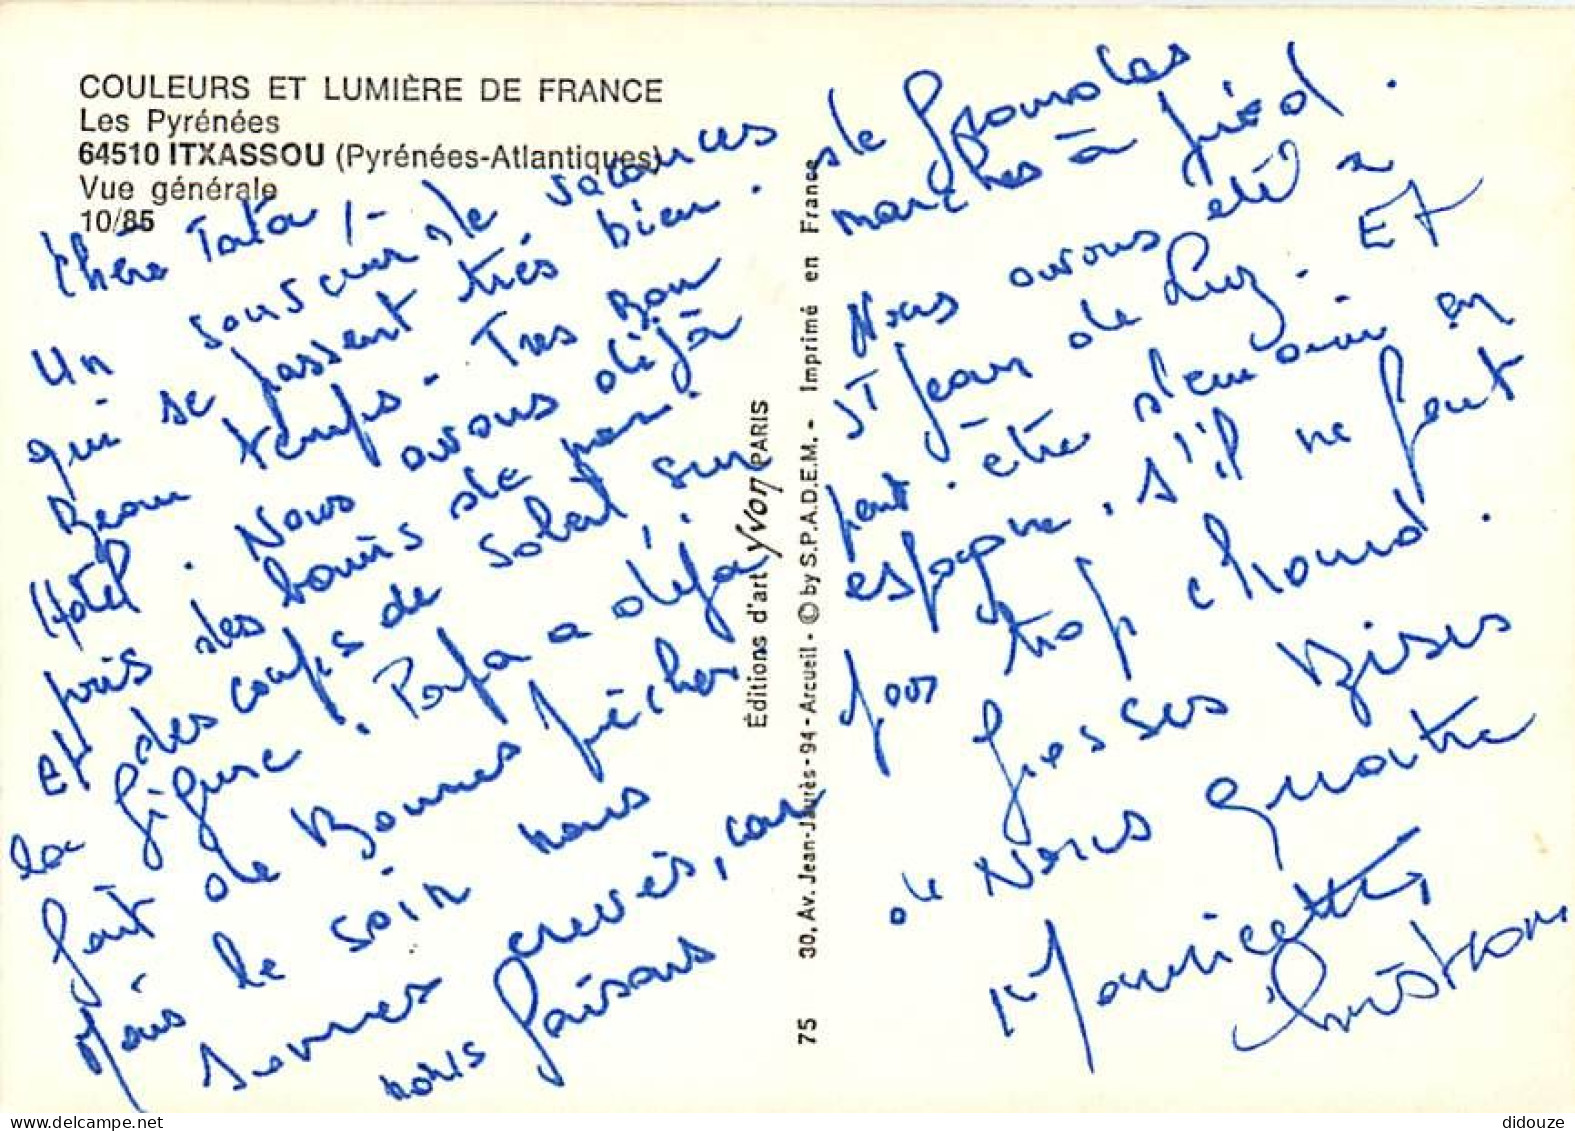 COULEURS ET LUMIÈRE DE FRANCE
Les Pyrénées
64510 ITXASSOU (Pyrénées-Atlantiques)
Vue générale
10/85
Chère Tata,
un souvenir de vacances
qui se passent très bien.
Beau temps - Très Bon
Hotel. Nous avons déjà
pris des bains de mer.
et des coups de soleil sur
la figure. Papa a déjà
fait de Bonnes pêches
Mais le soir nous
sommes crevés, car
nous faisons
de grandes
marches à pied.
Nous avons été à
St Jean de Luz. Et
peut-être demain en
espagne, s'il ne fait
pas trop chaud.
Grosses Bises
de Nous quatre
Mauricette,
Christian
Éditions d'art Yvon PARIS
30, Av. Jean-Jaurès - 94 - Arcueil - © by S.P.A.D.E.M. - Imprimé en France
75
didouze